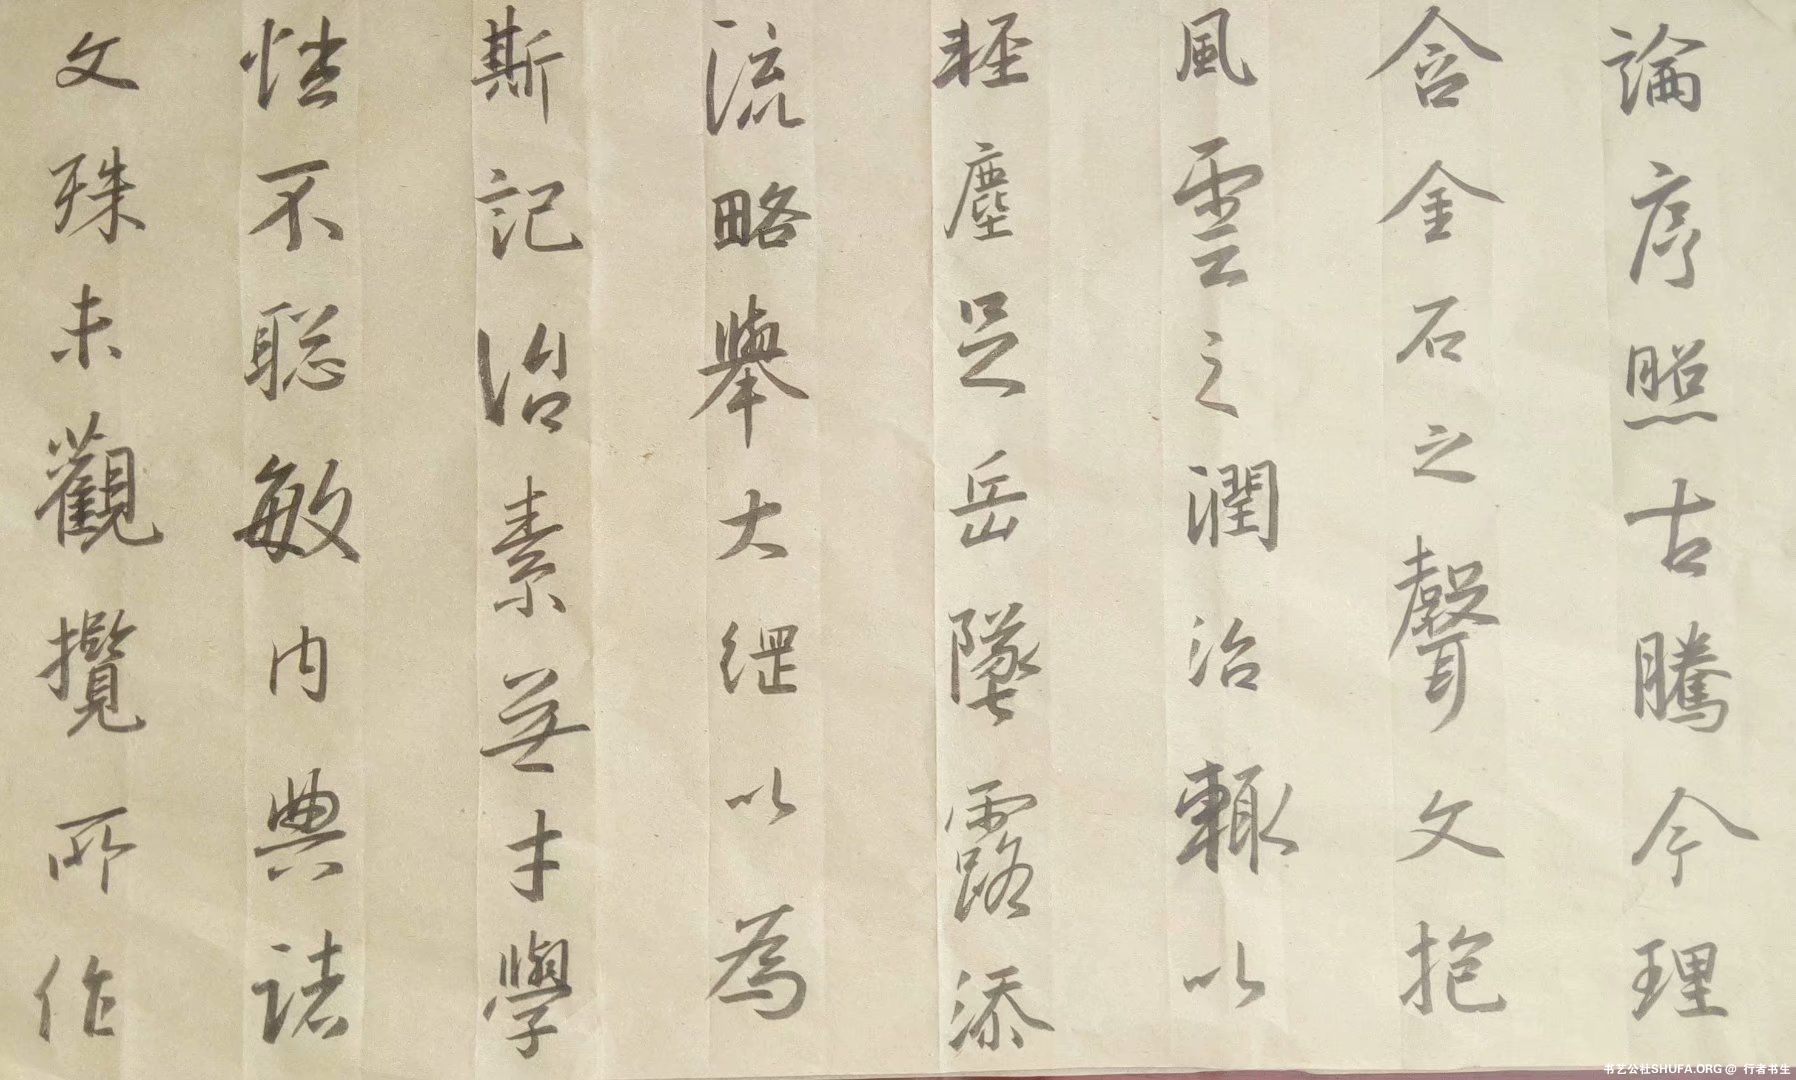 論序照古騰今理
含金石之聲文抱
風雲之潤治輒以
輕塵足岳墜露添
流略舉大綱以為
斯記治素無才學
性不聰敏內典諸
文殊未觀攬所作
书艺公社SHUFA.ORG @ 行者书生